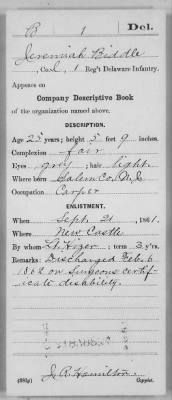 B 1 Del.
Jeremiah Biddle
Co. 1 Reg't Delaware Infantry.
Appears on
Company Descriptive Book
of the organization named above.
DESCRIPTION.
Age 25 years; height 5 feet 9 inches.
Complexion fair
Eyes grey; hair light.
Where born Salem Co. N.J.
Occupation Carper
ENLISTMENT.
When Sept. 21, 1861.
Where New Castle
By whom Lt. ; term 3 y'rs.
Remarks: Discharged Feb. 6
1862 on surgeons certif-
icate disability.
J. R. Hamilton
Copyist.